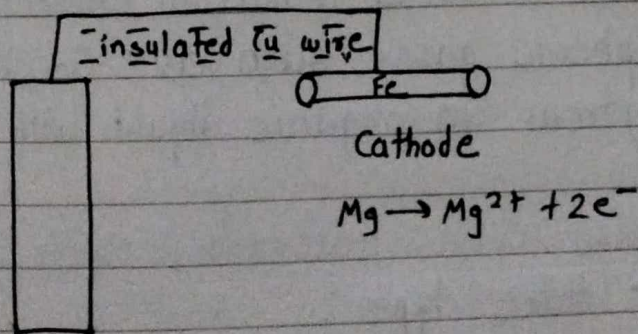 insulated Cu wire
Fe
Cathode
Mg → Mg²⁺ + 2e⁻